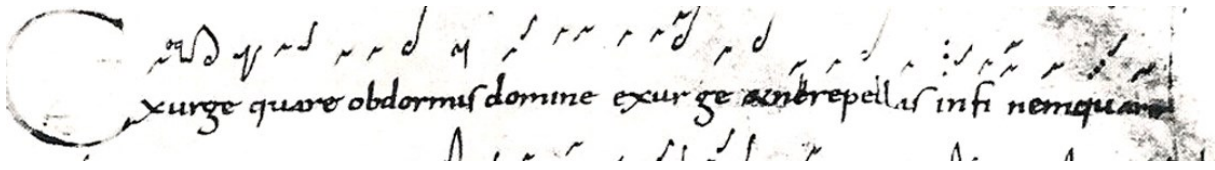 Exurge quare obdormis domine exurge et ne repellas in fi nem quare